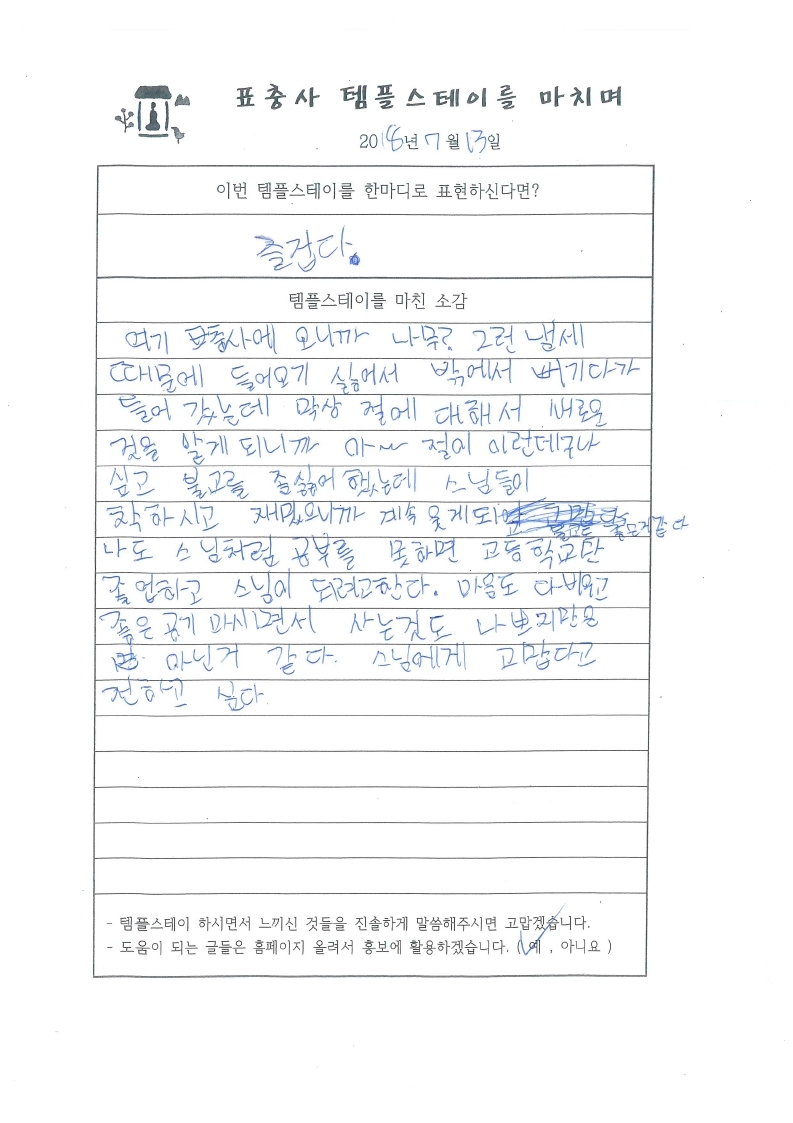 표충사 템플스테이를 마치며
2018년 7월 13일
이번 템플스테이를 한마디로 표현하신다면?
즐겁다.
템플스테이를 마친 소감
여기 표충사에 오니까 나무? 그런 벌세
때문에 들어오기 싫어서 밖에서 버기다가
들어 갔는데 막상 절에 대해서 새로운
것을 알게 되니까 아~~ 절이 이런데구나
싶고 불교를 졸싫어 했는데 스님들이
착하시고 재밌으니까 계속 웃게되
나도 스님처럼 공부를 못하면 고등학교만
졸업하고 스님이 되려고한다. 마음도 다비우고
좋은 공기 마시면서 사는것도 나쁘지만은
아닌거 같다. 스님에게 고맙다고
전하고 싶다
- 템플스테이 하시면서 느끼신 것들을 진솔하게 말씀해주시면 고맙겠습니다.
- 도움이 되는 글들은 홈페이지 올려서 홍보에 활용하겠습니다. ( 예 , 아니요 )